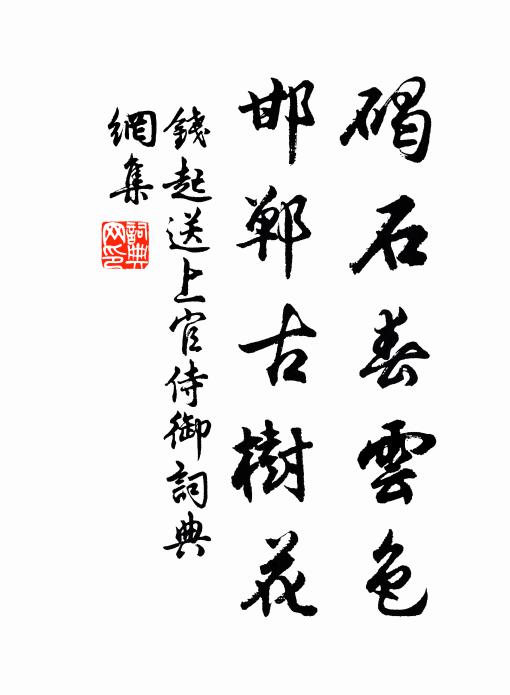 碣石春雲色
邯鄲古樹花
錢起送上官侍御詞典
網集
詞典
网印